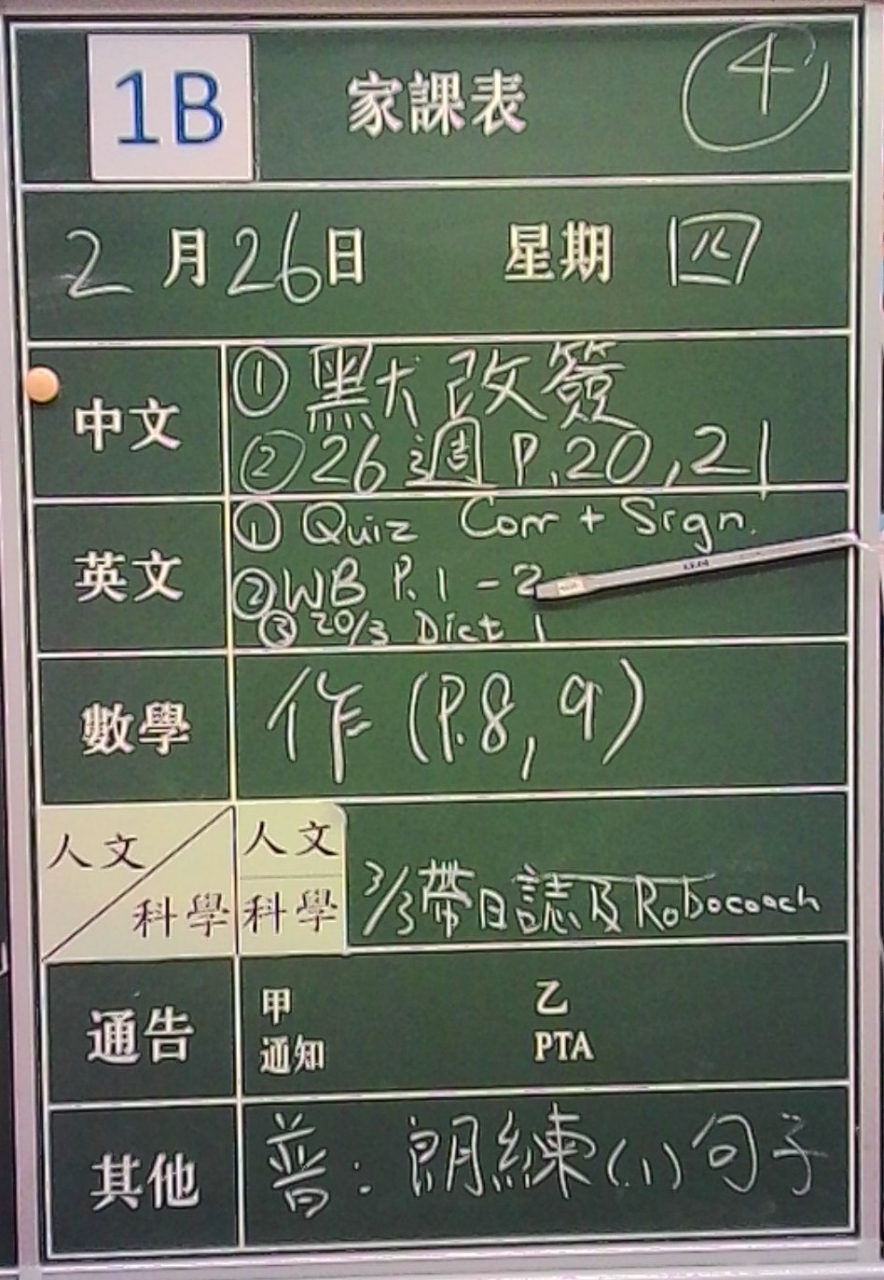 1B 家課表 ④
2月26日 星期四
中文 ① 默改簽
② 26週 P.20,21
英文 ① Quiz Corr + Sign.
② WB P.1-2
③ 20/3 Dict 1
數學 作(P.8,9)
人文 人文
科學 科學 3/3帶日誌及Robocoach
通告 甲 乙
通知 PTA
其他 普:朗練(1)句子